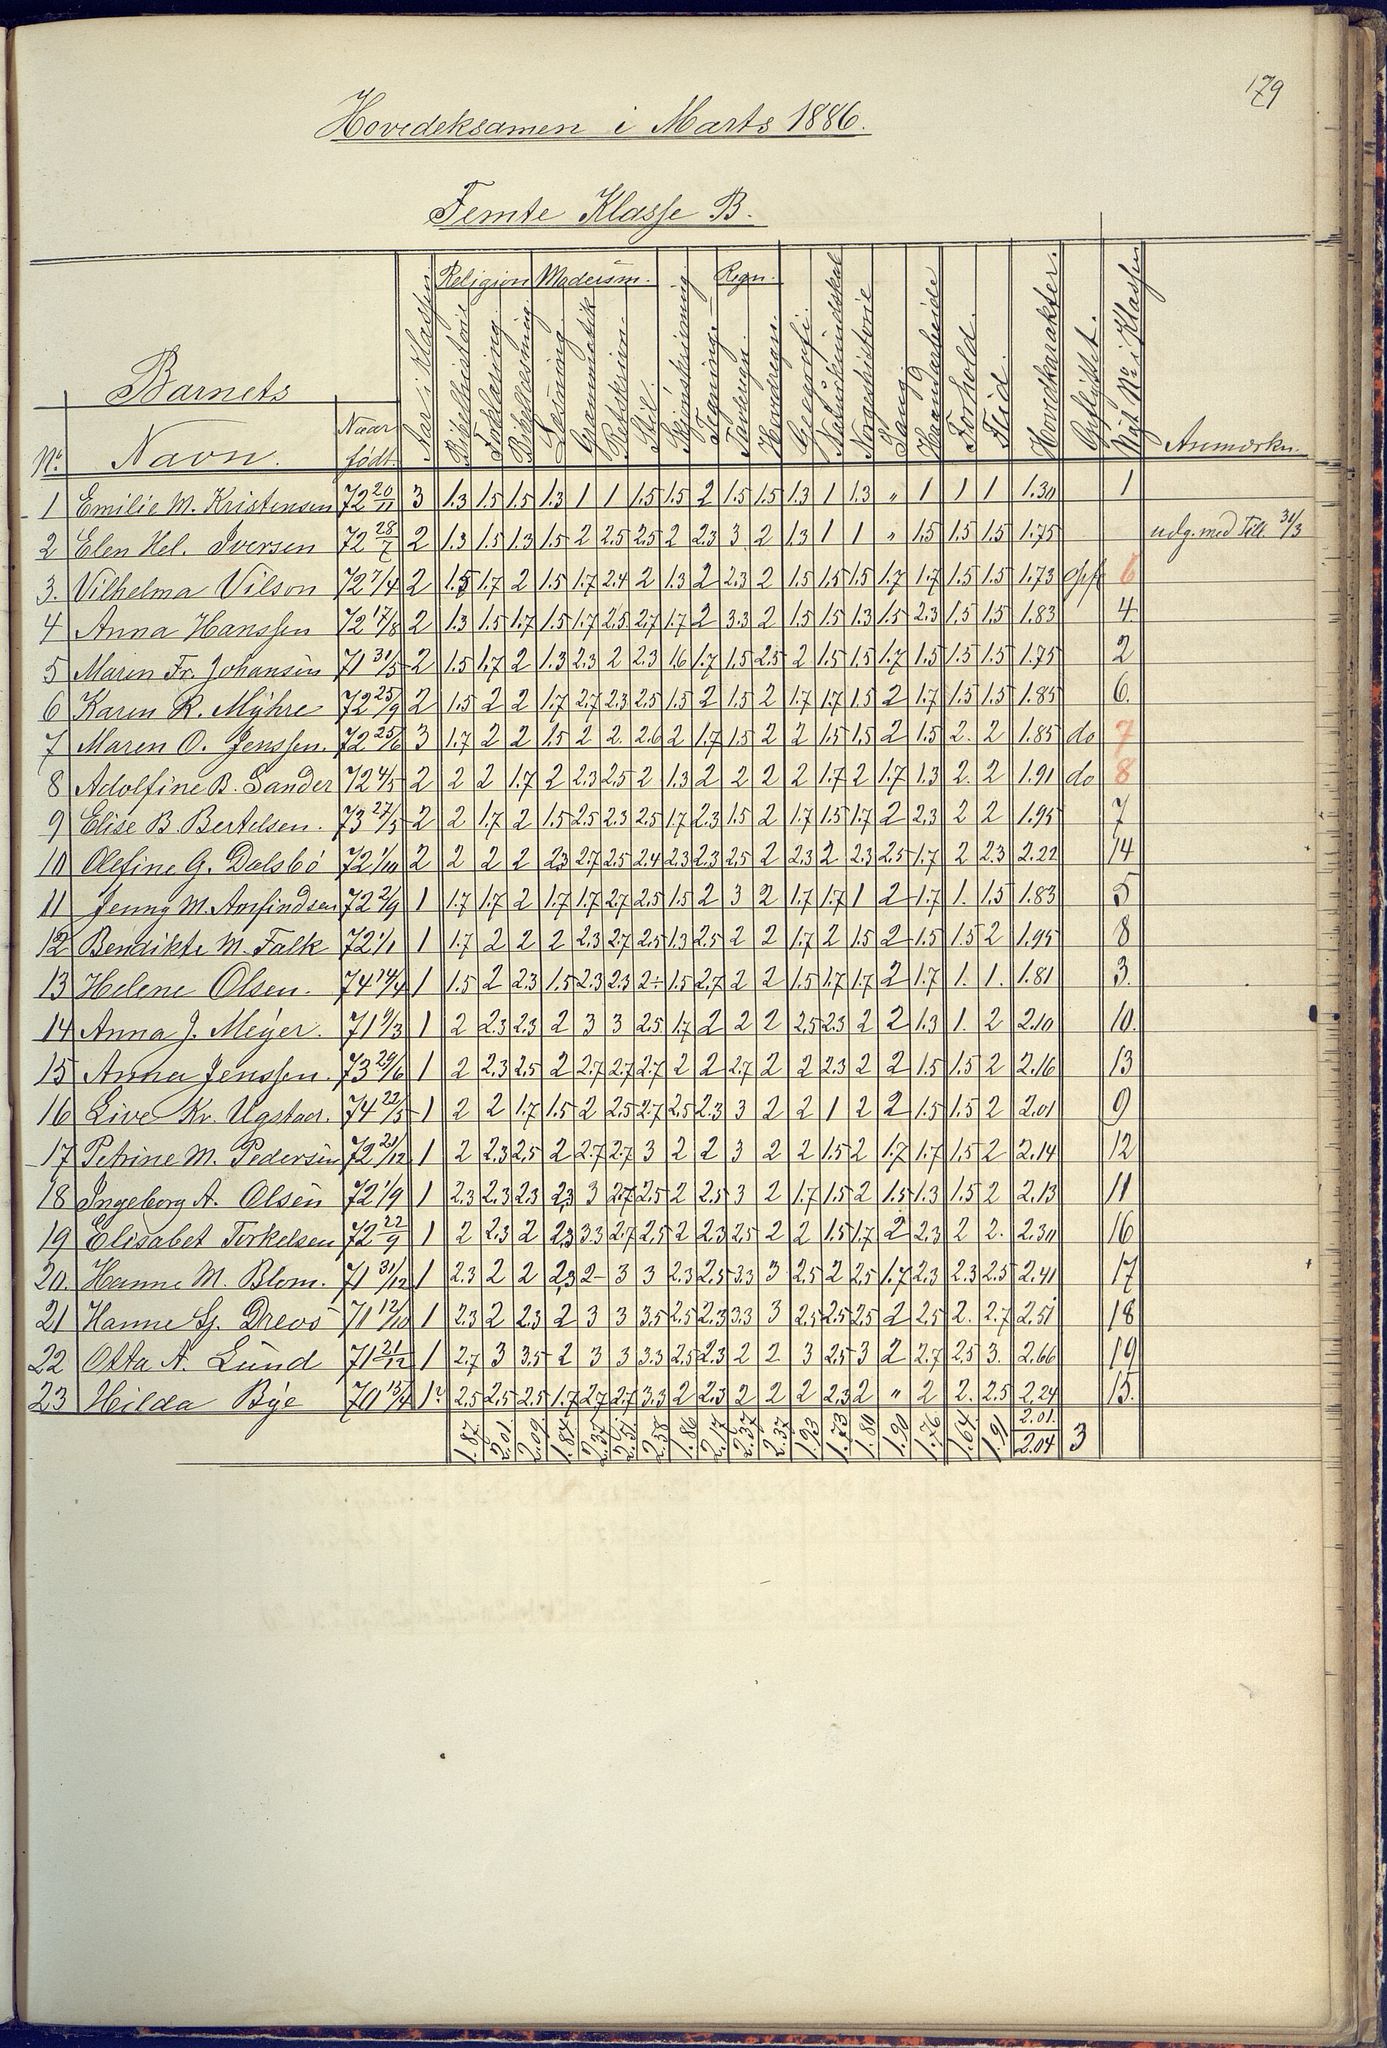 179
Hovedeksamen i Marts 1886.
Femte Klasse B.
Barnets
No. Navn. Naar født. Aar i Klassen. Religion Bibelhistorie Forklaring. Bibellæsning Modersm. Læsning. Grammatik Retskrivn. Stil. Skjønskrivning Tegning. Regn. Tavleregn. Hovedregn. Geografi. Naturkundskab Norgeshistorie Sang. Haandarbeide Forhold. Flid. Hovedkarakter. Opflyttet. Nyt No. i Klassen Anmærkn.
1 Emilie M. Kristensen 72 20/11 3 1.3 1.5 1.5 1.3 1 1 1.5 1.5 2 1.5 1.5 1.3 1 1.3 " 1 1 1 1.30 1
2 Elen Hel. Iversen 72 28/7 2 1.3 1.5 1.3 1.5 2 2.5 2.5 2 2.3 3 2 1.3 1 1 " 1.5 1.5 1.5 1.75 udg. med Till. 31/3
3. Vilhelma Vilson 72 7/4 2 1.5 1.7 2 1.5 1.7 2.4 2 1.3 2 2.3 2 1.5 1.5 1.5 1.7 1.7 1.5 1.5 1.73 opfl 6
4 Anna Hanssen 72 17/8 2 1.3 1.5 1.7 1.5 1.7 2.5 2.7 1.7 2 3.3 2 1.5 1.5 1.3 1.5 2.3 1.5 1.5 1.83 4.
5 Maren Fr. Johansen 71 31/5 2 1.5 1.7 2 1.3 2.3 2 2.3 1.6 1.7 1.5 2.5 2 1.5 1.5 1.7 1.5 1.5 1.5 1.75 2
6 Karen R. Myhre 72 25/9 2 1.5 2 2 1.7 2.7 2.3 2.5 1.5 2 1.5 2 1.7 1.7 1.5 2 1.7 1.5 1.5 1.85 6.
7 Maren O. Jenssen. 72 25/6 3 1.7 2 2 1.5 2 2. 2.6 2 1.7 1.5 2 2 1.5 1.5 2 1.5 2. 2 1.85 do 7
8 Adolfine B. Sander 72 4/5 2 2 2 1.7 2 2.3 2.5 2 1.3 2 2 2 2 1.7 2 1.7 1.3 2. 2 1.91 do 8
9 Elise B. Bertelsen. 73 27/5 2 2 1.7 2 1.5 2.5 2.3 2.5 1.7 2.3 1.5 2 1.7 1.5 1.7 2 2.3 2 2 1.95 7
10 Olefine G. Dalsbö 72 1/10 2 2 2 2 2.3 2.7 2.5 2.4 2.3 2.3 2.5 2 2.3 2 2.3 2.5 1.7 2 2.3 2.22 14
11 Jenny M. Arfindsen 72 2/9 1 1.7 1.7 2 1.7 1.7 2.7 2.5 1.5 2 3 2 1.7 1.7 1 2 1.7 1. 1.5 1.83 5
12 Bendikte M. Falk 72 1/1 1 1.7 2 2 2 2.3 2.7 2.5 1.3 2.5 2 2 1.7 2 1.5 2 1.5 1.5 2 1.95 8
13 Helene Olsen. 74 14/4 1 1.5 2 2.3 1.5 2.3 2.3 2÷ 1.5 2.7 2 2 1.5 1.7 1.7 2 1.7 1. 1. 1.81 3.
14 Anna J. Meyer. 71 9/3 1 2 2.3 2.3 2 3 3 2.5 1.7 2 2 2 2.5 2.3 2 2 1.3 1. 2 2.10 10.
15 Anna Jenssen. 73 29/6 1 2 2.3 2.5 2 2.7 2.7 2.7 2 2 2.7 2 2 2.3 2 2 1.5 1.5 2 2.16 13
16 Live Kr. Ugstad. 74 22/5 1 2 2 1.7 1.5 2 2.5 2.7 2.5 2.3 3 2 2 1 2 2 1.5 1.5 2 2.01 9
17 Petrine M. Pedersen 72 21/12 1 2 2.3 2.5 2 2.7 2.7 3 2 2 3 2 2 1.5 2 1.7 1.7 1.5 2 2.14 12
18 Ingeborg A. Olsen 72 1/9 1 2.3 2.3 2.3 2.3 3 2.7 2.5 2 2.5 3 2 1.7 1.5 2 1.5 1.3 1.5 2 2.13 11
19 Elisabet Torkelsen 72 22/9 1 2 2.3 2 2.3 3.3 2.7 2.5 2 2.3 2.5 2 2 1.5 1.7 2 2.3 2 2. 2.30 16
20. Hanne M. Blom. 71 31/12 1 2.3 2 2 2.3 2- 3 3 2.3 2.5 3.3 3 2.5 2 2.5 1.7 2.3 2.3 2.5 2.41 17
21 Hanne Sj. Drevö 71 12/10 1 2.3 2 2.3 2 3 3 3.5 2.5 2.3 3.3 3 2.5 2.5 2.5 2 2.5 2. 2.7 2.51 18
22 Otta A. Lund 71 21/12 1 2.7 3 3.5 2 3 3 3.3 2.5 2.3 2 2 3 2.5 3 2 2.7 2.5 3. 2.66 19
23 Hilda Bye 70 15/4 1 2.5 2.5 2.5 1.7 2.7 2.7 3.3 2 2.3 2 2 2 2.3 2 " 2 2. 2.5 2.24 15.
1.87 2.01 2.09 1.84 2.37 2.51 2.58 1.86 2.17 2.37 2.37 1.93 1.73 1.80 1.90 1.76 1.64 1.91 2.01. 2.04 3